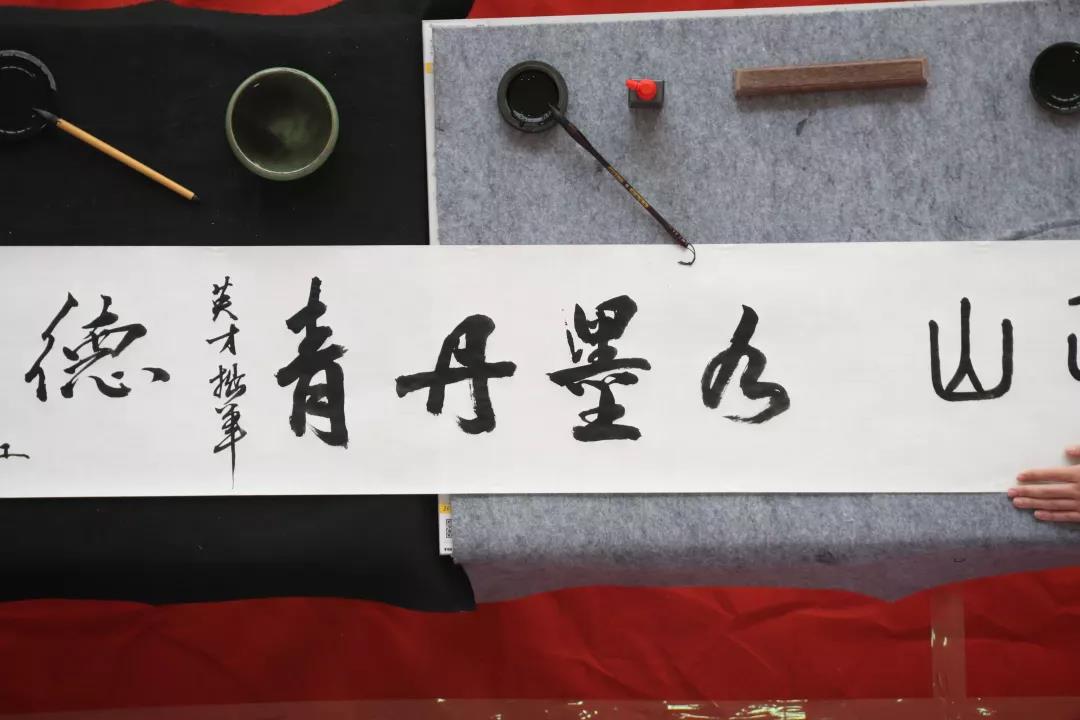 山
水墨丹青
英才拙筆
德